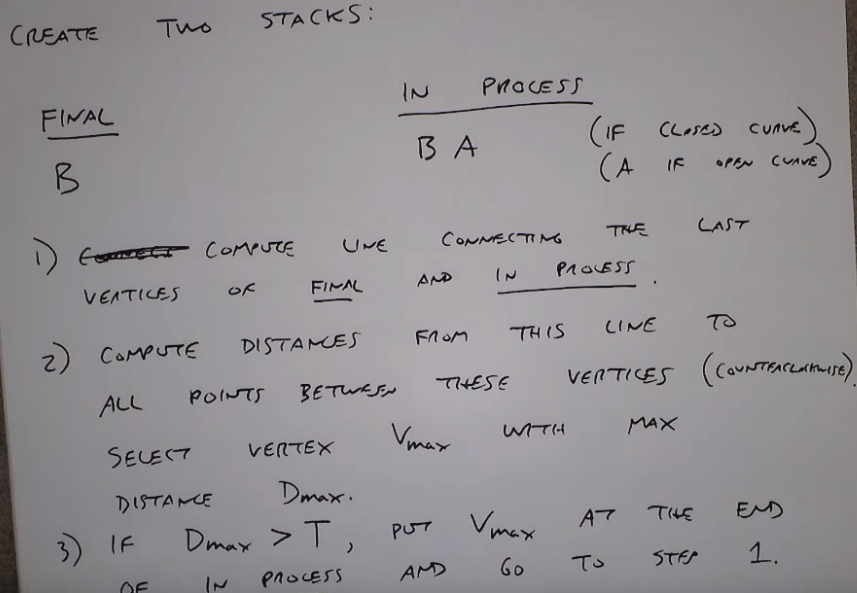 CREATE TWO STACKS:
FINAL
IN PROCESS
B
B A
(IF CLOSED CURVE)
(A IF OPEN CURVE)
1) COMPUTE LINE CONNECTING THE LAST
VERTICES OF FINAL AND IN PROCESS.
2) COMPUTE DISTANCES FROM THIS LINE TO
ALL POINTS BETWEEN THESE VERTICES (COUNTERCLOCKWISE).
SELECT VERTEX Vmax WITH MAX
DISTANCE Dmax.
3) IF Dmax > T, PUT Vmax AT THE END
OF IN PROCESS AND GO TO STEP 1.